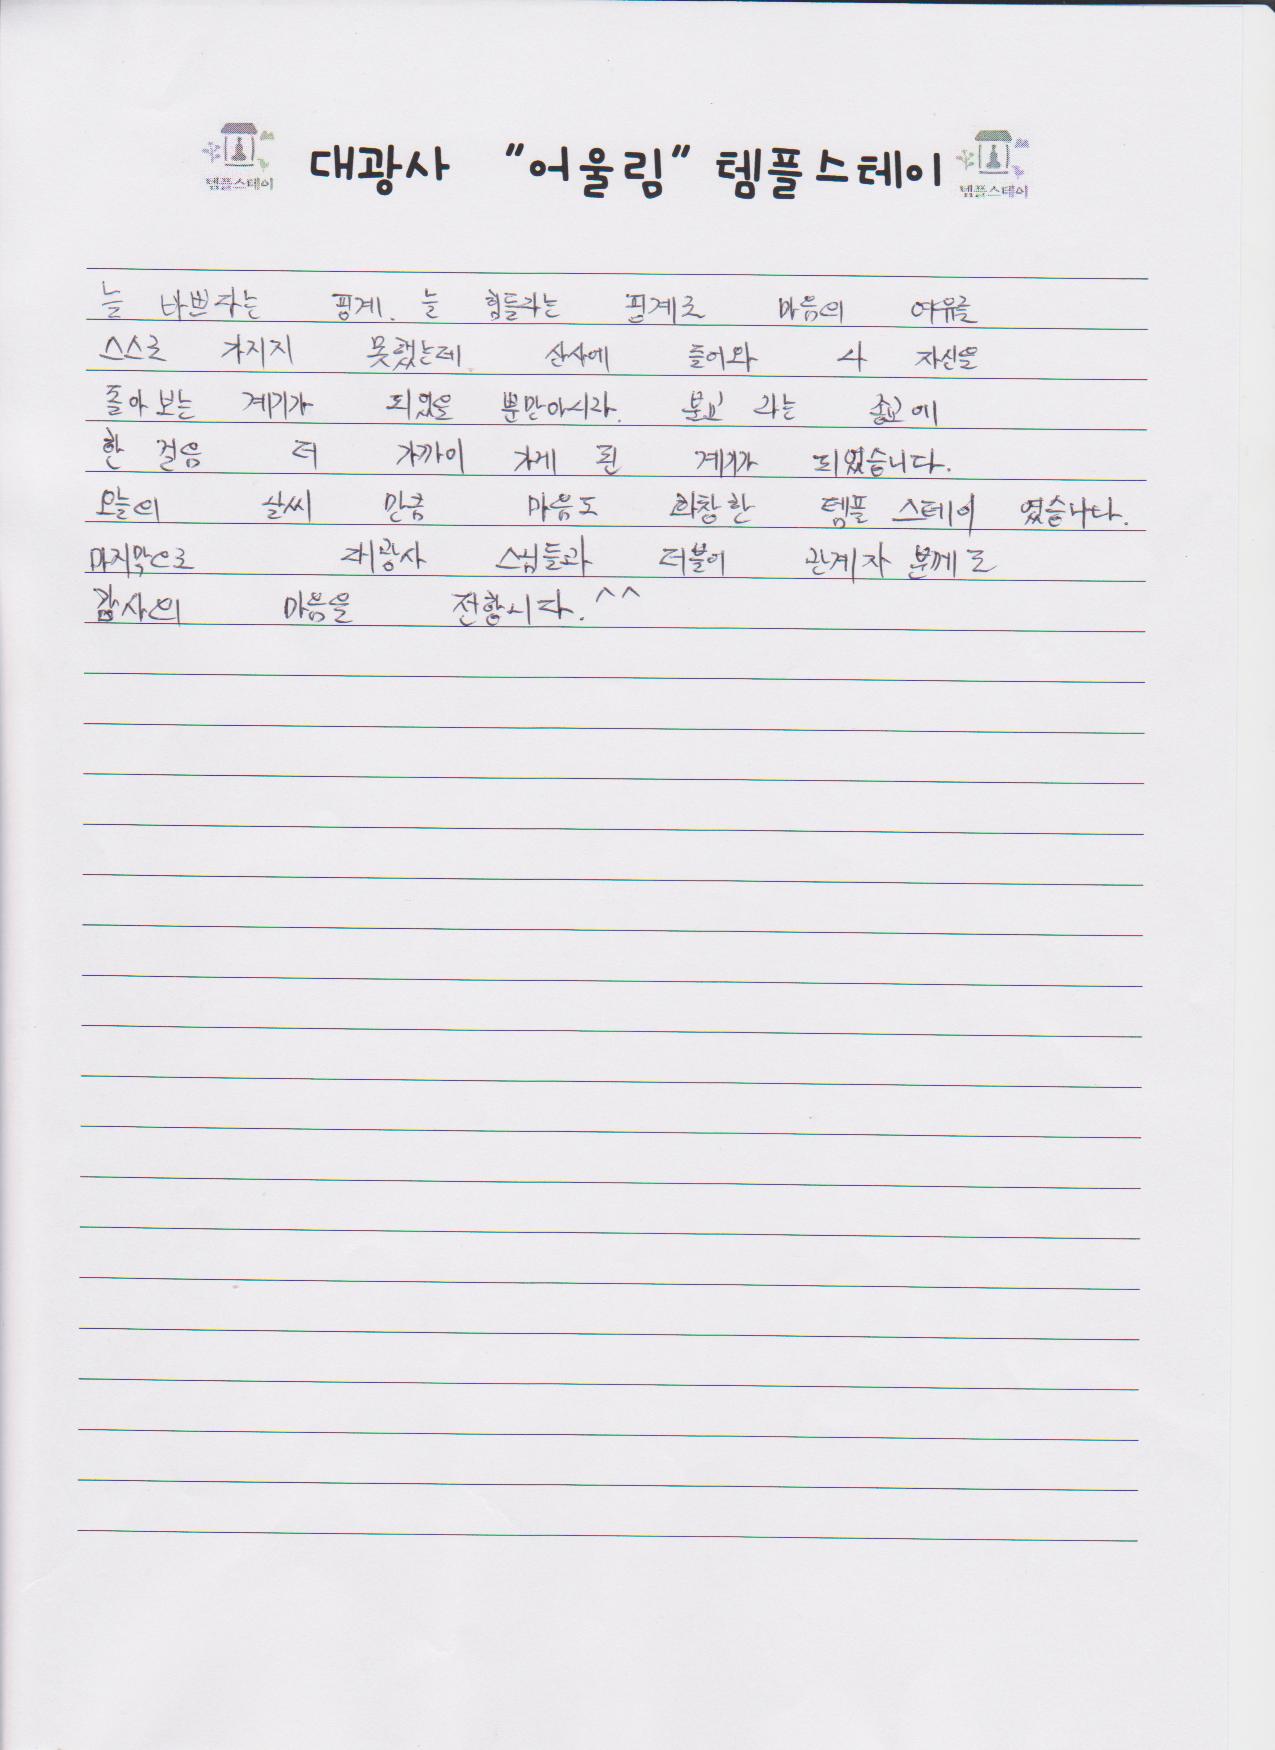 템플스테이 대광사 "어울림" 템플스테이 템플스테이
늘 바쁘다는 핑계. 늘 힘들다는 핑계로 마음의 여유를
스스로 가지지 못했는데 산사에 들어와 나 자신을
돌아 보는 계기가 되었을 뿐만아니라. 불교 라는 종교에
한 걸음 더 가까이 가게 된 계기가 되었습니다.
오늘의 날씨 만큼 마음도 화창한 템플 스테이 였습니다.
마지막으로 대광사 스님들과 더불어 관계자 분께도
감사의 마음을 전합니다. ^^